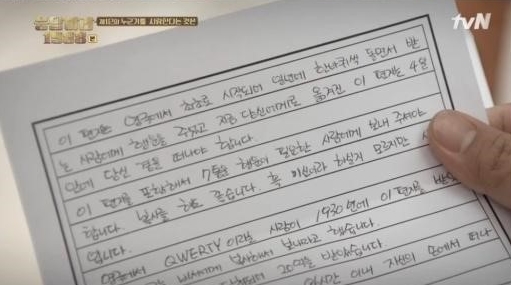 응답하라
1988
누군가를
것은
tvN
이 편지는 영국에서 최초로 시작되어 일년에 한바퀴씩 돌면서 받
는 사람에게 행운을 주었고 지금 당신에게로 옮겨진 이 편지는 4일
안에 당신 곁을 떠나야 합니다.
이 편지를 포함해서 7통을 행운이 필요한 사람에게 보내 주셔야
합니다. 복사를 해도 좋습니다. 혹 미신이라 하실지 모르지만 사
입니다.
영국에서 QWERTY 이라는 사람이 1930년에 이 편지를 받
비서에게 복사해서 보내라고 했습니다.
20억을 받았습니다
이내 자신의 손에서 떠나